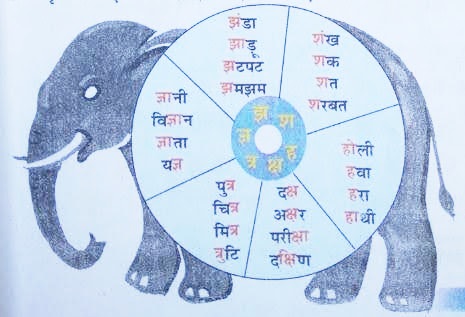 झंडा
झाड़ू
झटपट
झमझम
शंख
शक
शत
शरबत
होली
हवा
हरा
हाथी
दक्ष
अक्षर
परीक्षा
दक्षिण
पुत्र
चित्र
मित्र
त्रुटि
ज्ञानी
विज्ञान
ज्ञाता
यज्ञ
झ
श
ह
क्ष
त्र
ज्ञ